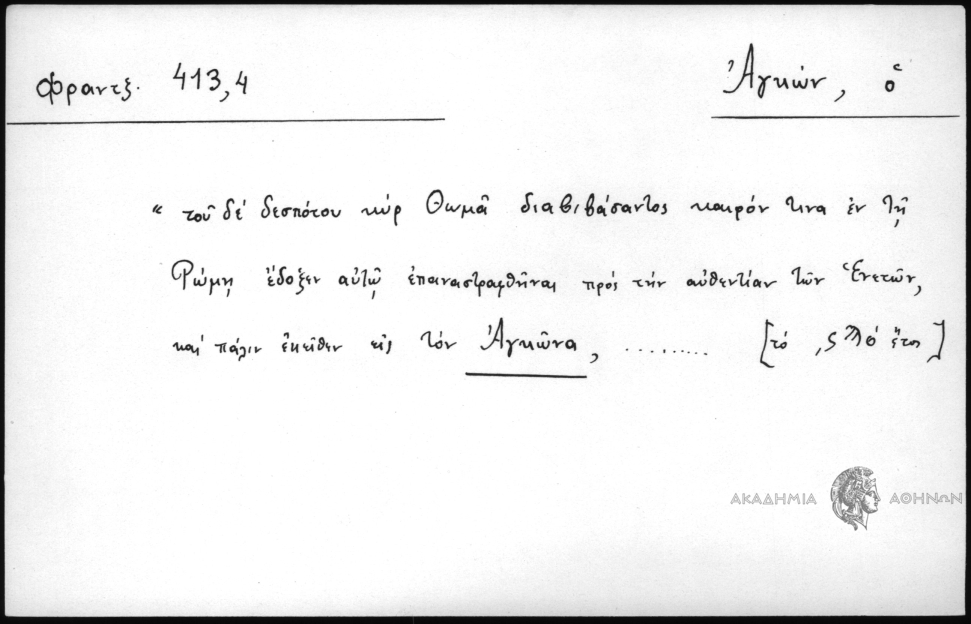 Φραντζ. 413,4
Ἀγκών, ὁ
“ τοῦ δέ δεσπότου κύρ Θωμᾶ διαβιβάσαντος καιρόν τινα ἐν τῇ
Ρώμῃ ἔδοξεν αὐτῷ ἐπαναστραφῆναι πρός τήν αὐθεντίαν τῶν Ἑνετῶν,
καί πάλιν ἐκεῖθεν εἰς τόν Ἀγκῶνα, .......... [τό ἔτος]
ΑΚΑΔΗΜΙΑ ΑΘΗΝΩΝ